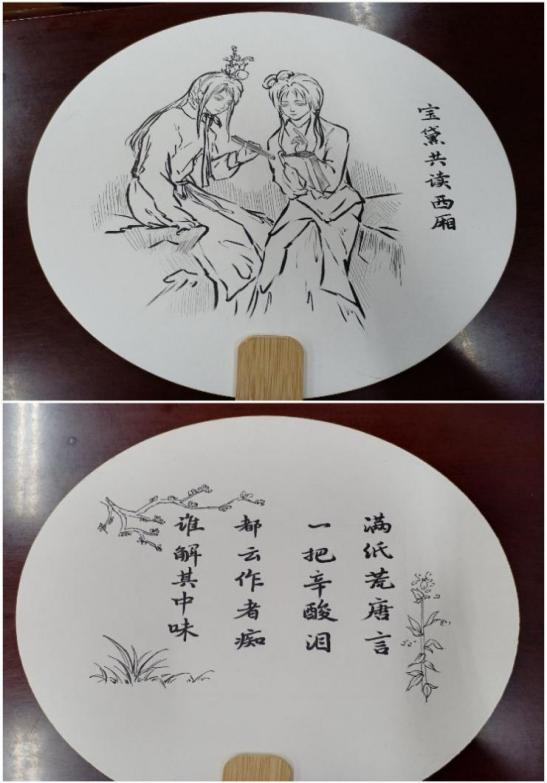 宝黛共读西厢
满纸荒唐言
一把辛酸泪
都云作者痴
谁解其中味